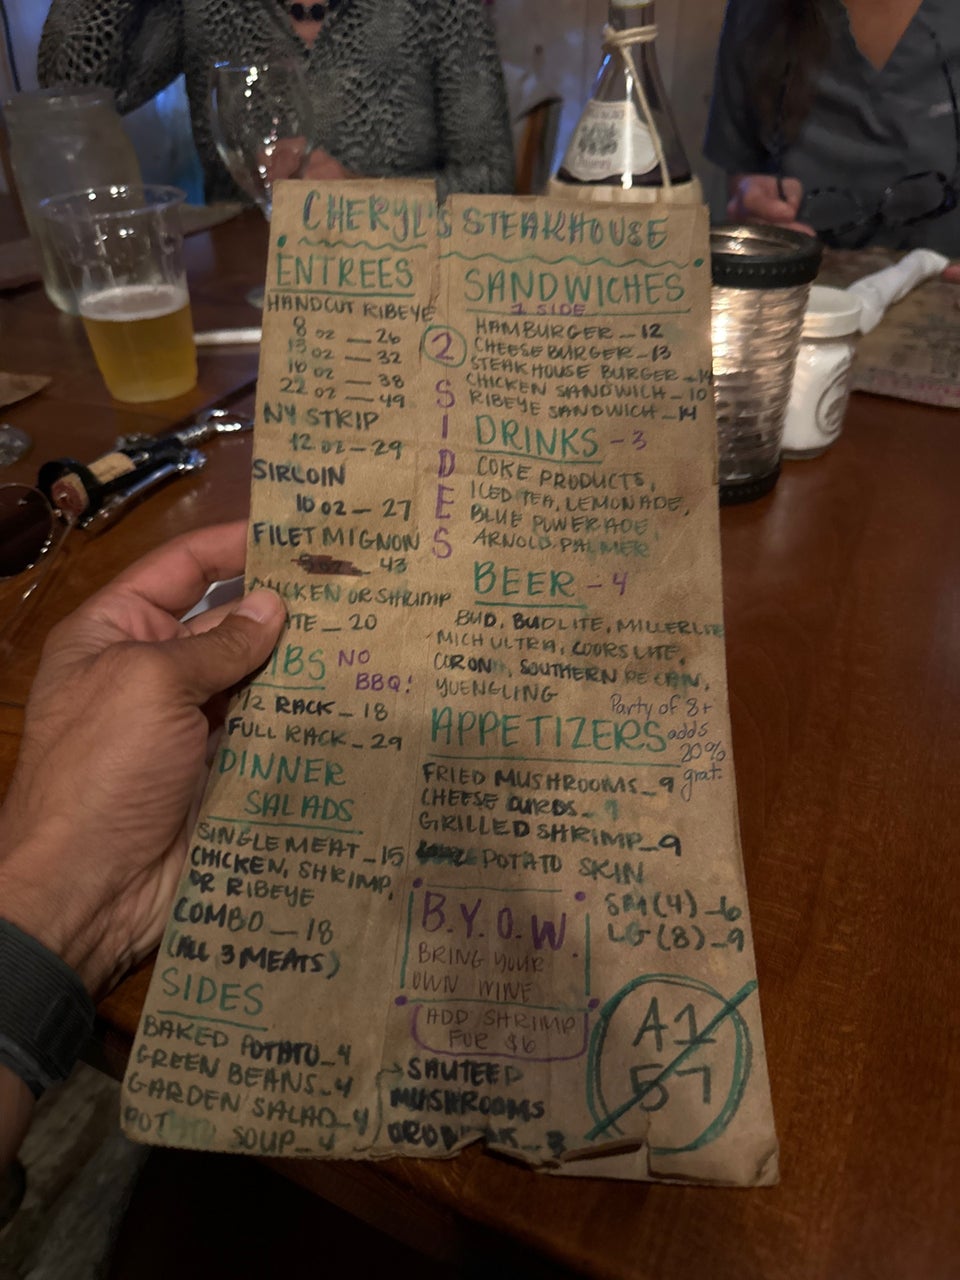 CHERYL'S STEAKHOUSE
ENTREES
HANDCUT RIBEYE
8 oz — 26
13 oz — 32
16 oz — 38
22 oz — 49
NY STRIP
12 oz — 29
SIRLOIN
10 oz — 27
FILET MIGNON
43
CHICKEN OR SHRIMP
20
2 SIDES
RIBS NO
BBQ!
1/2 RACK _ 18
FULL RACK _ 29
DINNER
SALADS
SINGLE MEAT _ 15
CHICKEN, SHRIMP,
OR RIBEYE
COMBO _ 18
(ALL 3 MEATS)
SIDES
BAKED POTATO _ 4
GREEN BEANS _ 4
GARDEN SALAD _ 4
SOUP _ 4
SANDWICHES
1 SIDE
HAMBURGER _ 12
CHEESEBURGER _ 13
STEAKHOUSE BURGER _ 14
CHICKEN SANDWICH _ 10
RIBEYE SANDWICH _ 14
DRINKS - 3
COKE PRODUCTS,
ICED TEA, LEMONADE,
BLUE POWERADE
ARNOLD PALMER
BEER - 4
BUD, BUDLITE, MILLERLITE
MICH ULTRA, COORS LITE,
CORONA, SOUTHERN PECAN,
YUENGLING
Party of 8+
adds
20%
grat.
APPETIZERS
FRIED MUSHROOMS _ 9
CHEESE CURDS _ 9
GRILLED SHRIMP _ 9
POTATO SKIN
SM (4) _ 6
LG (8) _ 9
B.Y.O.W
BRING YOUR
OWN WINE
ADD SHRIMP
FOR $6
SAUTEED
MUSHROOMS
OR
A1
57